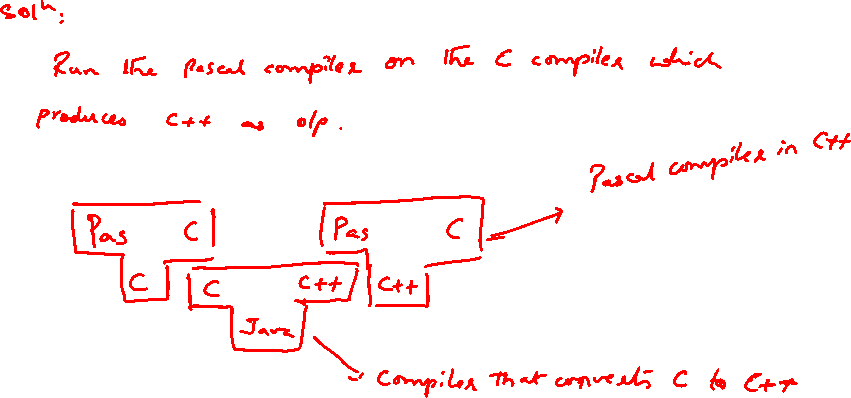 Soln:
Run the Pascal compiler on the C compiler which
produces C++ as o/p.
Pascal compiler in C++
Pas C
Pas C
C
C C++
C++
Java
Compiler that converts C to C++